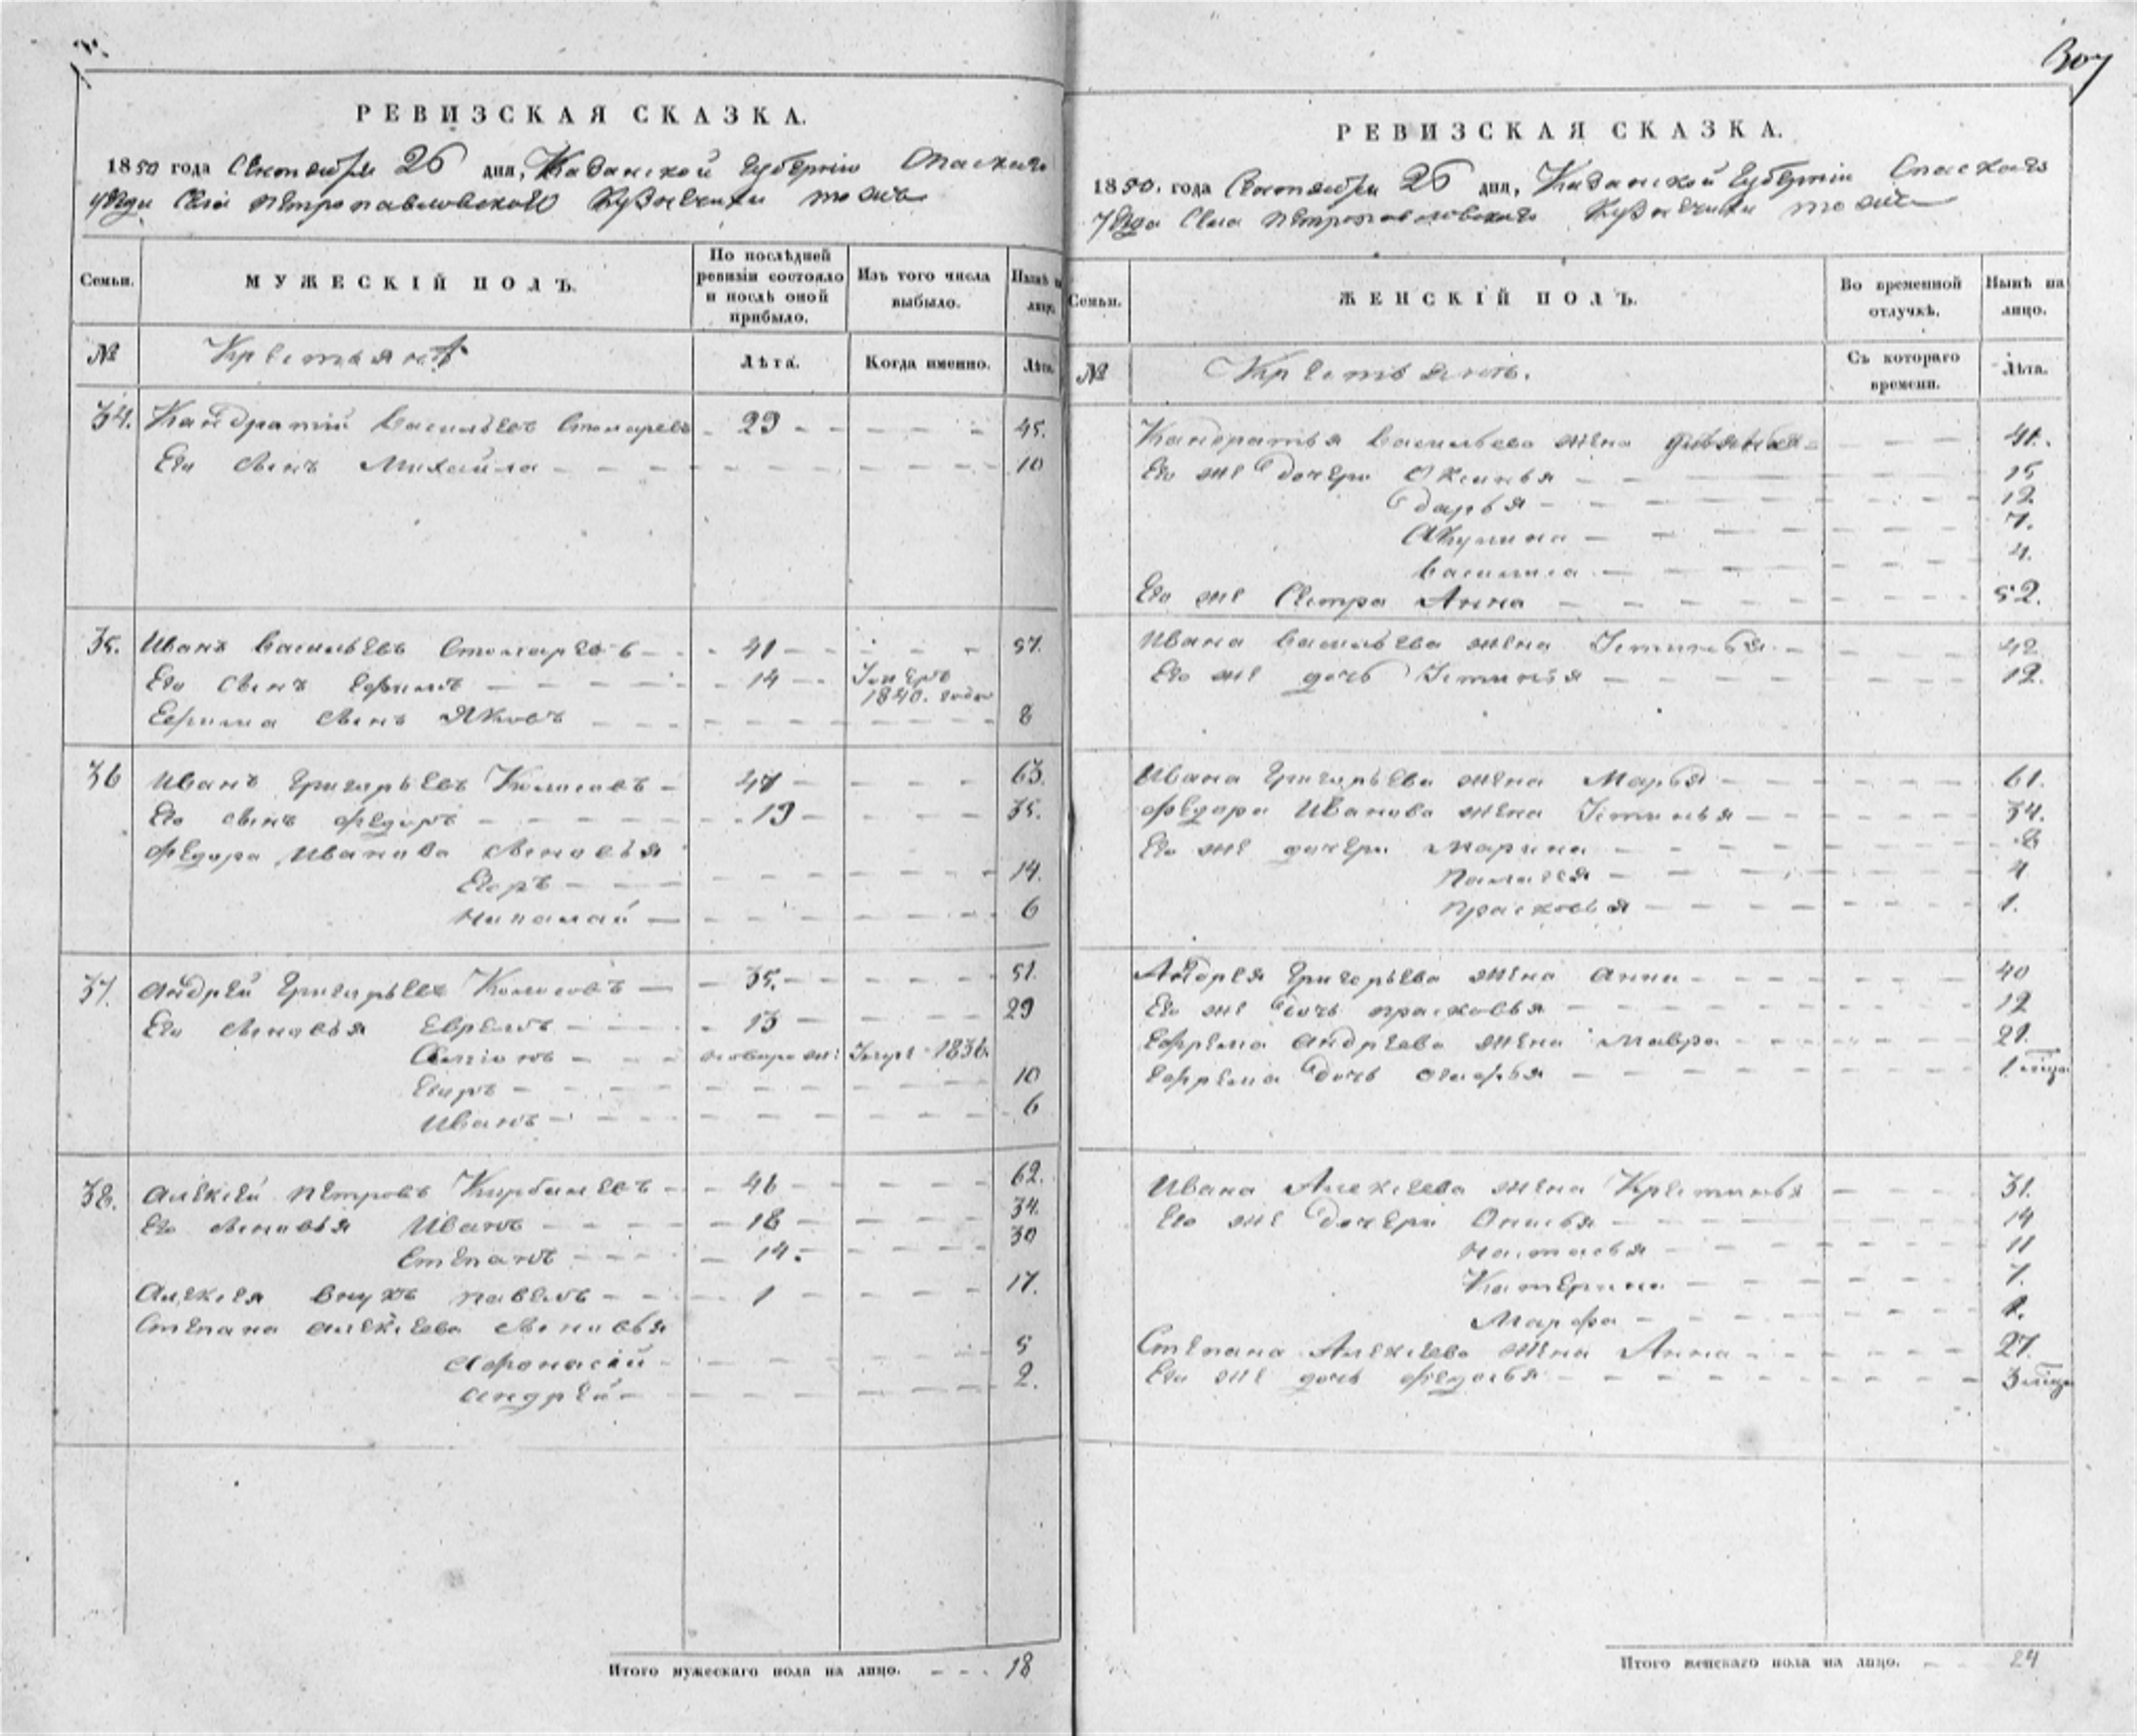 307
РЕВИЗСКАЯ СКАЗКА.
1850 года Сентября 26 дня, Казанской Губернии Спаскаго
уезда Села Петропавловского Кузнечиха тожъ
Семьи. МУЖЕСКІЙ ПОЛЪ. По послѣдней ревизіи состояло и послѣ оной прибыло. Изъ того числа выбыло. Нынѣ на лицо.
№ Крестьянъ Лѣта. Когда именно. Лѣта.
34. Кандратій Васильевъ Столяревъ 29 45.
Его сынъ Михайла 10
35. Иванъ Васильевъ 41 57.
Его сынъ Ефимъ 14 1840. года
Ефима сынъ Яковъ 8
36 Иванъ Григорьевъ Колосовъ 47 63.
Его сынъ Федоръ 19 35.
Федора Иванова сыновья
Егоръ 14.
Николай 6
37. Андрей Григорьевъ Колосовъ 35. 51.
Его сыновья Ефремъ 13 29
1836.
Егоръ 10
Иванъ 6
38. Алексей Петровъ 46 62.
Его сыновья Иванъ 18 34.
Степанъ 14. 30
Алексея внукъ Павелъ 1 17.
Степана Алексеева сыновья
Афонасій 5
Андрей 2.
Итого мужескаго пола на лицо. 18
РЕВИЗСКАЯ СКАЗКА.
1850. года Сентября 26 дня, Казанской Губернии Спаскаго
Уезда Села Петропавловскаго Кузнечиха тожъ
Семьи. ЖЕНСКІЙ ПОЛЪ. Во временной отлучкѣ. Нынѣ на лицо.
№ Крестьянъ. Съ котораго времени. Лѣта.
Кандратья Васильева жена 41.
Его же дочери Оксинья 15
Дарья 12
Акулина 7.
Василиса 4.
Его же Сестра Анна 52.
Ивана Васильева жена Устинья 42
Его же дочь Устинья 12.
Ивана Григорьева жена Марья 61.
Федора Иванова жена Устинья 34.
Его же дочери Марина 8
Палагея 4
Прасковья 1.
Андрея Григорьева жена Анна 40
Его же дочь Прасковья 12
Ефрема Андреева жена Мавра 21.
Ефрема дочь Огафья 1
Ивана Алексеева жена Крестинья 31.
Его же дочери Онисья 14
Настасья 11
Катерина 7.
Марфа 1.
Степана Алексеева жена Анна 27.
Его же дочь Федосья 3
Итого женскаго пола на лицо. 24